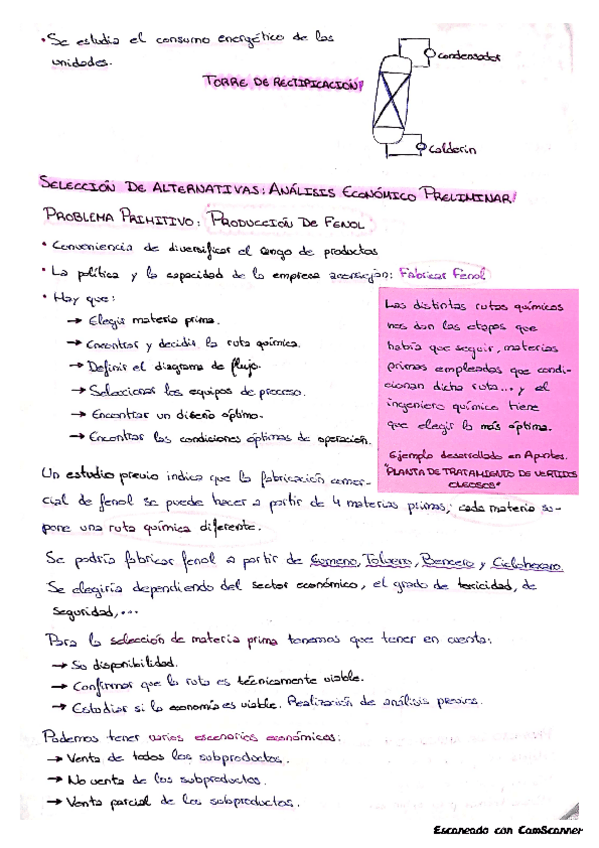 • Se estudia el consumo energético de las
unidades.
condensador
TORRE DE RECTIFICACIÓN
Calderín
SELECCIÓN DE ALTERNATIVAS: ANÁLISIS ECONÓMICO PRELIMINAR
PROBLEMA PRIMITIVO: PRODUCCIÓN DE FENOL
• Conveniencia de diversificar el rango de productos
• La política y la capacidad de la empresa aconsejan: Fabricar Fenol
• Hay que:
→ Elegir materia prima.
→ Encontrar y decidir la ruta química.
→ Definir el diagrama de flujo.
→ Seleccionar los equipos de proceso.
→ Encontrar un diseño óptimo.
→ Encontrar las condiciones óptimas de operación.
Las distintas rutas químicas
nos dan las etapas que
había que seguir, materias
primas empleadas que condi-
cionan dicha ruta... y el
ingeniero químico tiene
que elegir la más óptima.
Ejemplo desarrollado en Apuntes.
"PLANTA DE TRATAMIENTO DE VERTIDOS
OLEOSOS"
Un estudio previo indica que la fabricación comer-
cial de fenol se puede hacer a partir de 4 materias primas, cada materia su-
pone una ruta química diferente.
Se podría fabricar fenol a partir de Cumeno, Tolueno, Benceno y Ciclohexano.
Se elegiría dependiendo del sector económico, el grado de toxicidad, de
seguridad,...
Para la selección de materia prima tenemos que tener en cuenta:
→ Su disponibilidad.
→ Confirmar que la ruta es técnicamente viable.
→ Estudiar si la economía es viable. Realización de análisis previos.
Podemos tener varios escenarios económicos:
→ Venta de todos los subproductos.
→ No venta de los subproductos.
→ Venta parcial de los subproductos.
Escaneado con CamScanner